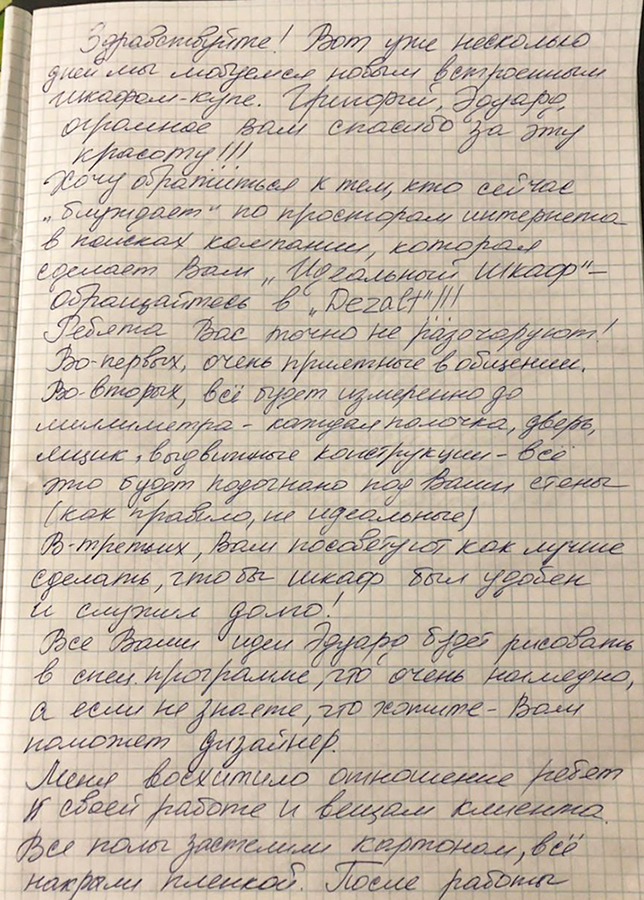 Здравствуйте! Вот уже несколько
дней мы любуемся новым встроенным
шкафом-купе. Григорий, Эдуард,
огромное Вам спасибо за эту
красоту!!!
Хочу обратиться к тем, кто сейчас
„блуждает" по просторам интернета
в поисках компании, которая
сделает Вам „Идеальный шкаф"-
обращайтесь в „Dezalt"!!!
Ребята Вас точно не разочаруют!
Во-первых, очень приятные в общении.
Во-вторых, всё будет измеренно до
миллиметра - каждая полочка, дверь,
ящик, выдвижные конструкции - всё
это будет подогнано под Ваши стены
(как правило, не идеальные)
В-третьих, Вам посоветуют как лучше
сделать, чтобы шкаф был удобен
и служил долго!
Все Ваши идеи Эдуард будет рисовать
в спец. программе, что очень наглядно,
а если не знаете, что хотите - Вам
поможет дизайнер.
Меня восхитило отношение ребят
к своей работе и вещам клиента.
Все полы застелили картоном, всё
накрыли пленкой. После работы